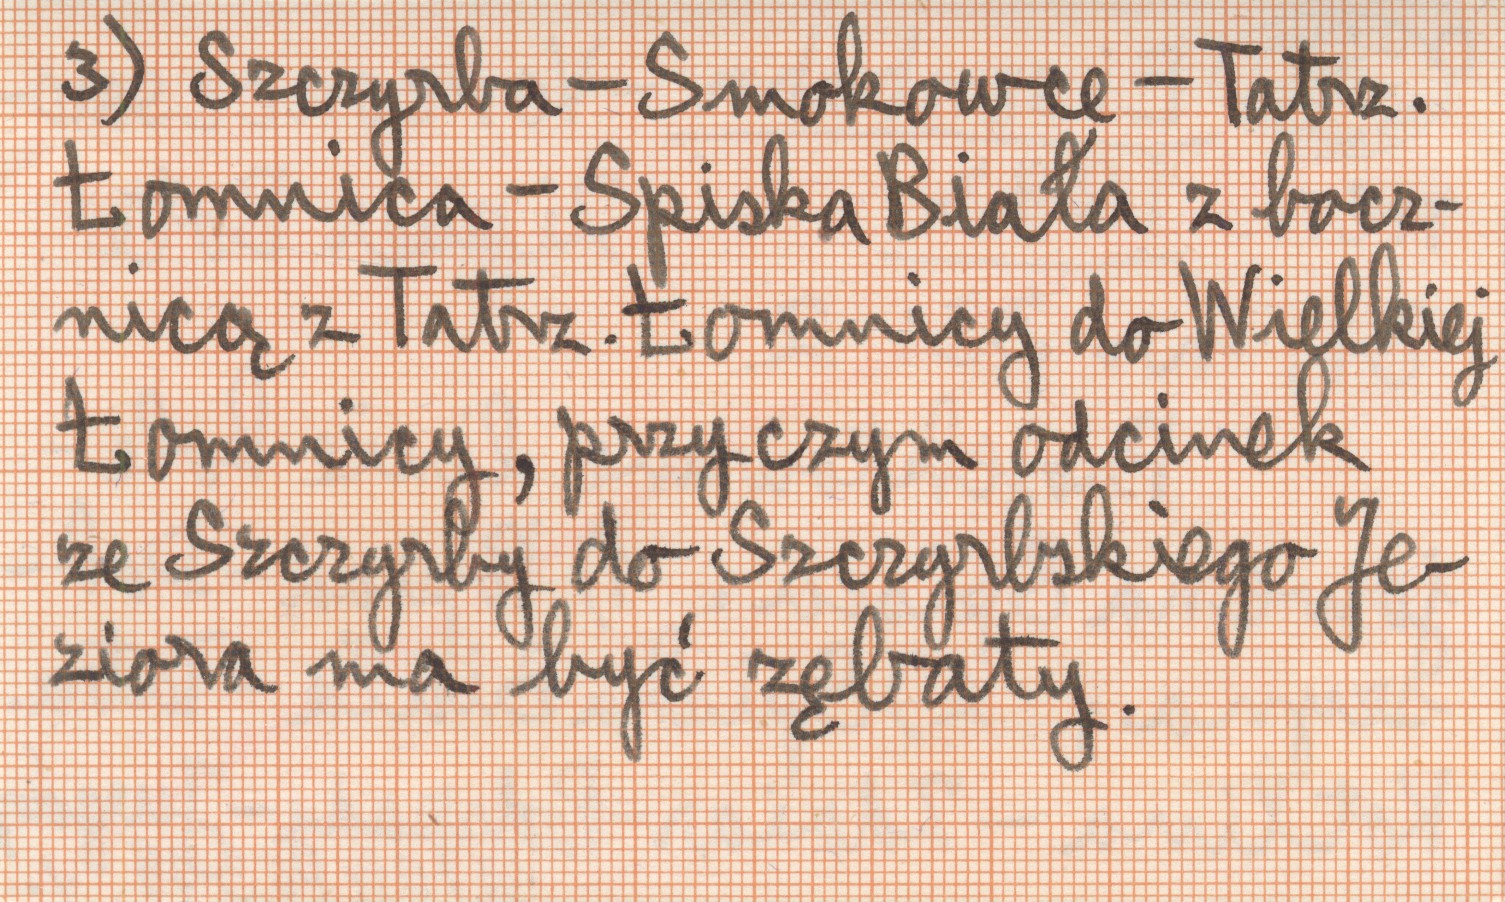 3) Szczyrba - Smokowce - Tatrz.
Łomnica - Spiska Biała z bocz-
nicą z Tatrz. Łomnicy do Wielkiej
Łomnicy, przyczym odcinek
ze Szczyrby do Szczyrbskiego Je-
ziora ma być zębaty.